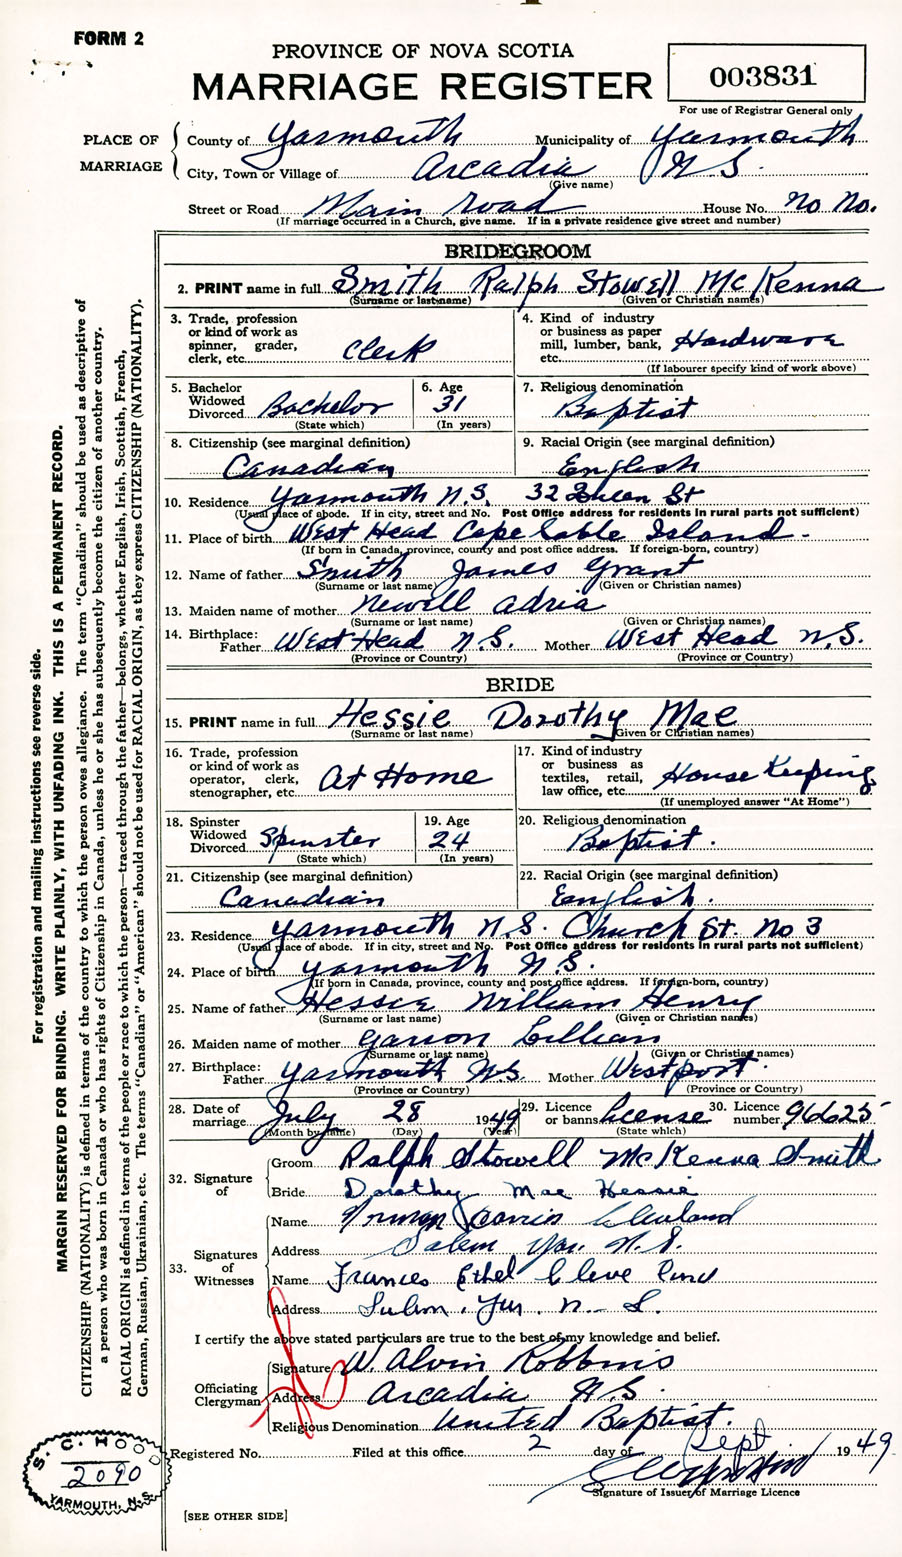 FORM 2
PROVINCE OF NOVA SCOTIA
MARRIAGE REGISTER
003831
For use of Registrar General only
PLACE OF MARRIAGE
County of Yarmouth Municipality of Yarmouth
City, Town or Village of Arcadia N.S.
(Give name)
Street or Road Main Road House No. No No.
(If marriage occurred in a Church, give name. If in a private residence give street and number)
BRIDEGROOM
2. PRINT name in full Smith Ralph Stowell McKenna
(Surname or last name) (Given or Christian names)
3. Trade, profession or kind of work as spinner, grader, clerk, etc. Clerk
4. Kind of industry or business as paper mill, lumber, bank, etc. Hardware
(If labourer specify kind of work above)
5. Bachelor Widowed Divorced Bachelor
(State which)
6. Age 31
(In years)
7. Religious denomination Baptist
8. Citizenship (see marginal definition) Canadian
9. Racial Origin (see marginal definition) English
10. Residence Yarmouth N.S. 32 Queen St
(Usual place of abode. If in city, street and No. Post Office address for residents in rural parts not sufficient)
11. Place of birth West Head Cape Sable Island.
(If born in Canada, province, county and post office address. If foreign-born, country)
12. Name of father Smith James Grant
(Surname or last name) (Given or Christian names)
13. Maiden name of mother Newell Adria
(Surname or last name) (Given or Christian names)
14. Birthplace: Father West Head N.S. Mother West Head N.S.
(Province or Country) (Province or Country)
BRIDE
15. PRINT name in full Hessie Dorothy Mae
(Surname or last name) (Given or Christian names)
16. Trade, profession or kind of work as operator, clerk, stenographer, etc. At Home
17. Kind of industry or business as textiles, retail, law office, etc. House Keeping
(If unemployed answer "At Home")
18. Spinster Widowed Divorced Spinster
(State which)
19. Age 24
(In years)
20. Religious denomination Baptist.
21. Citizenship (see marginal definition) Canadian
22. Racial Origin (see marginal definition) English.
23. Residence Yarmouth N.S. Church St. No 3
(Usual place of abode. If in city, street and No. Post Office address for residents in rural parts not sufficient)
24. Place of birth Yarmouth N.S.
(If born in Canada, province, county and post office address. If foreign-born, country)
25. Name of father Hessie William Henry
(Surname or last name) (Given or Christian names)
26. Maiden name of mother Lillian
(Surname or last name) (Given or Christian names)
27. Birthplace: Father Yarmouth N.S. Mother Westport.
(Province or Country) (Province or Country)
28. Date of marriage July 28 1949
(Month by name) (Day) (Year)
29. Licence or banns License
(State which)
30. Licence number 96625
32. Signature of
Groom Ralph Stowell McKenna Smith
Bride Dorothy Mae Hessie
33. Signatures of Witnesses
Name Norman Cleveland
Address Salem Yar. N.S.
Name Frances Ethel Cleveland
Address Salem. Yar. N.S.
I certify the above stated particulars are true to the best of my knowledge and belief.
Officiating Clergyman
Signature W. Alvin Robbins
Address Arcadia N.S.
Religious Denomination United Baptist.
Registered No. Filed at this office 2 day of Sept 1949
Signature of Issuer of Marriage Licence
[SEE OTHER SIDE]
S. C. H. 2090 YARMOUTH, N.S.
For registration and mailing instructions see reverse side.
MARGIN RESERVED FOR BINDING. WRITE PLAINLY, WITH UNFADING INK. THIS IS A PERMANENT RECORD.
CITIZENSHIP (NATIONALITY) is defined in terms of the country to which the person owes allegiance. The term "Canadian" should be used as descriptive of
a person who was born in Canada or who has rights of Citizenship in Canada, unless he or she has subsequently become the citizen of another country.
RACIAL ORIGIN is defined in terms of the people or race to which the person—traced through the father—belongs, whether English, Irish, Scottish, French,
German, Russian, Ukrainian, etc. The terms "Canadian" or "American" should not be used for RACIAL ORIGIN, as they express CITIZENSHIP (NATIONALITY).